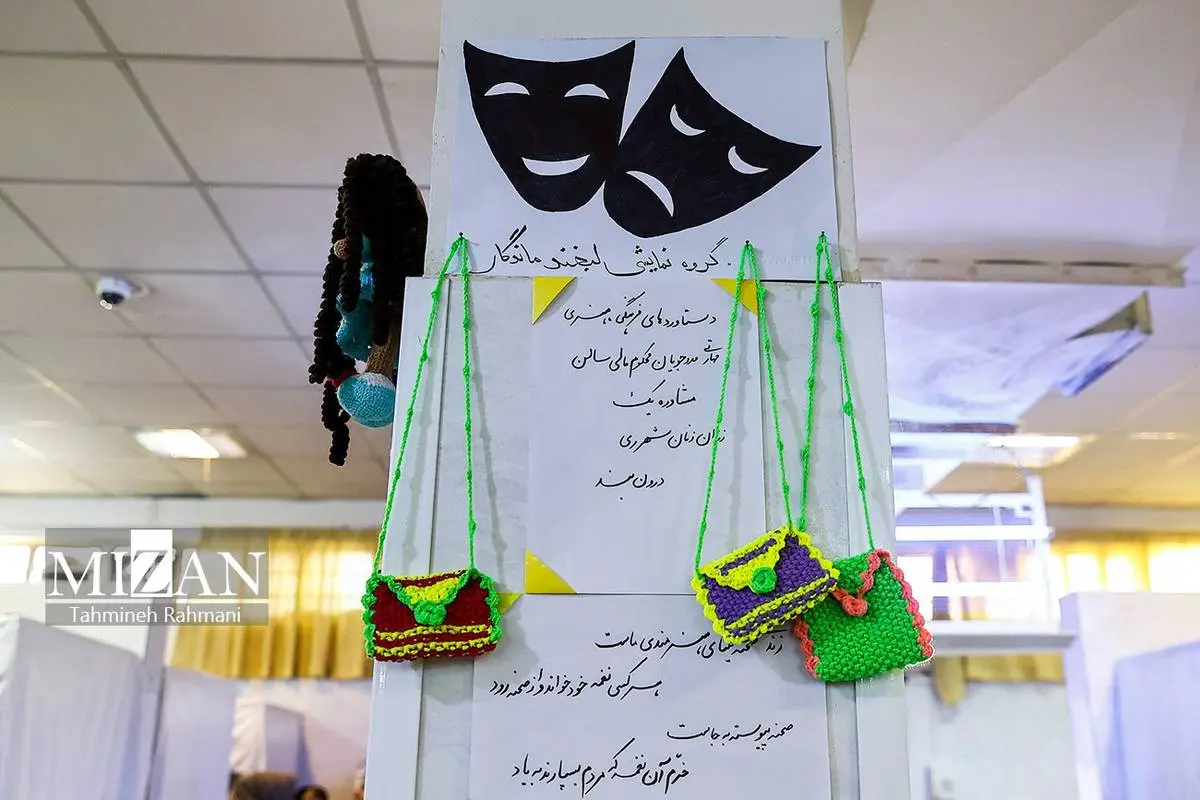 گروه نمایشی لبخند ماندگار
دستاوردهای فرهنگی هنری
مهارتی مددجویان محکوم مالی سالن
مشاوره یک
زندان زنان شهرری
درون مند
زند صحنه یکتای هنرمندی ماست
هر کسی نغمه خود خواند و از صحنه رود
صحنه پیوسته به جاست
خرم آن نغمه که مردم بسپارند به یاد
MIZAN
Tahmineh Rahmani